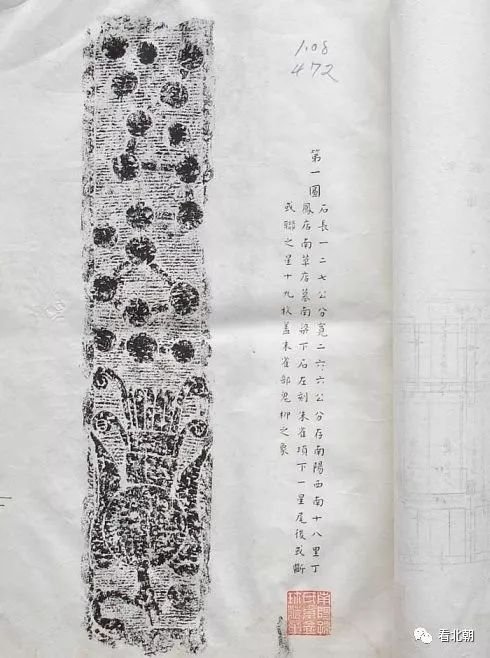 1.08
472
第一圖 石長一二七公分寬二六六公分存南陽西南十八里丁
鳳店南草店墓南梁下石左刻朱雀項下一星尾後或斷
或聯之星十九枚蓋朱雀部鬼柳之象
看北朝